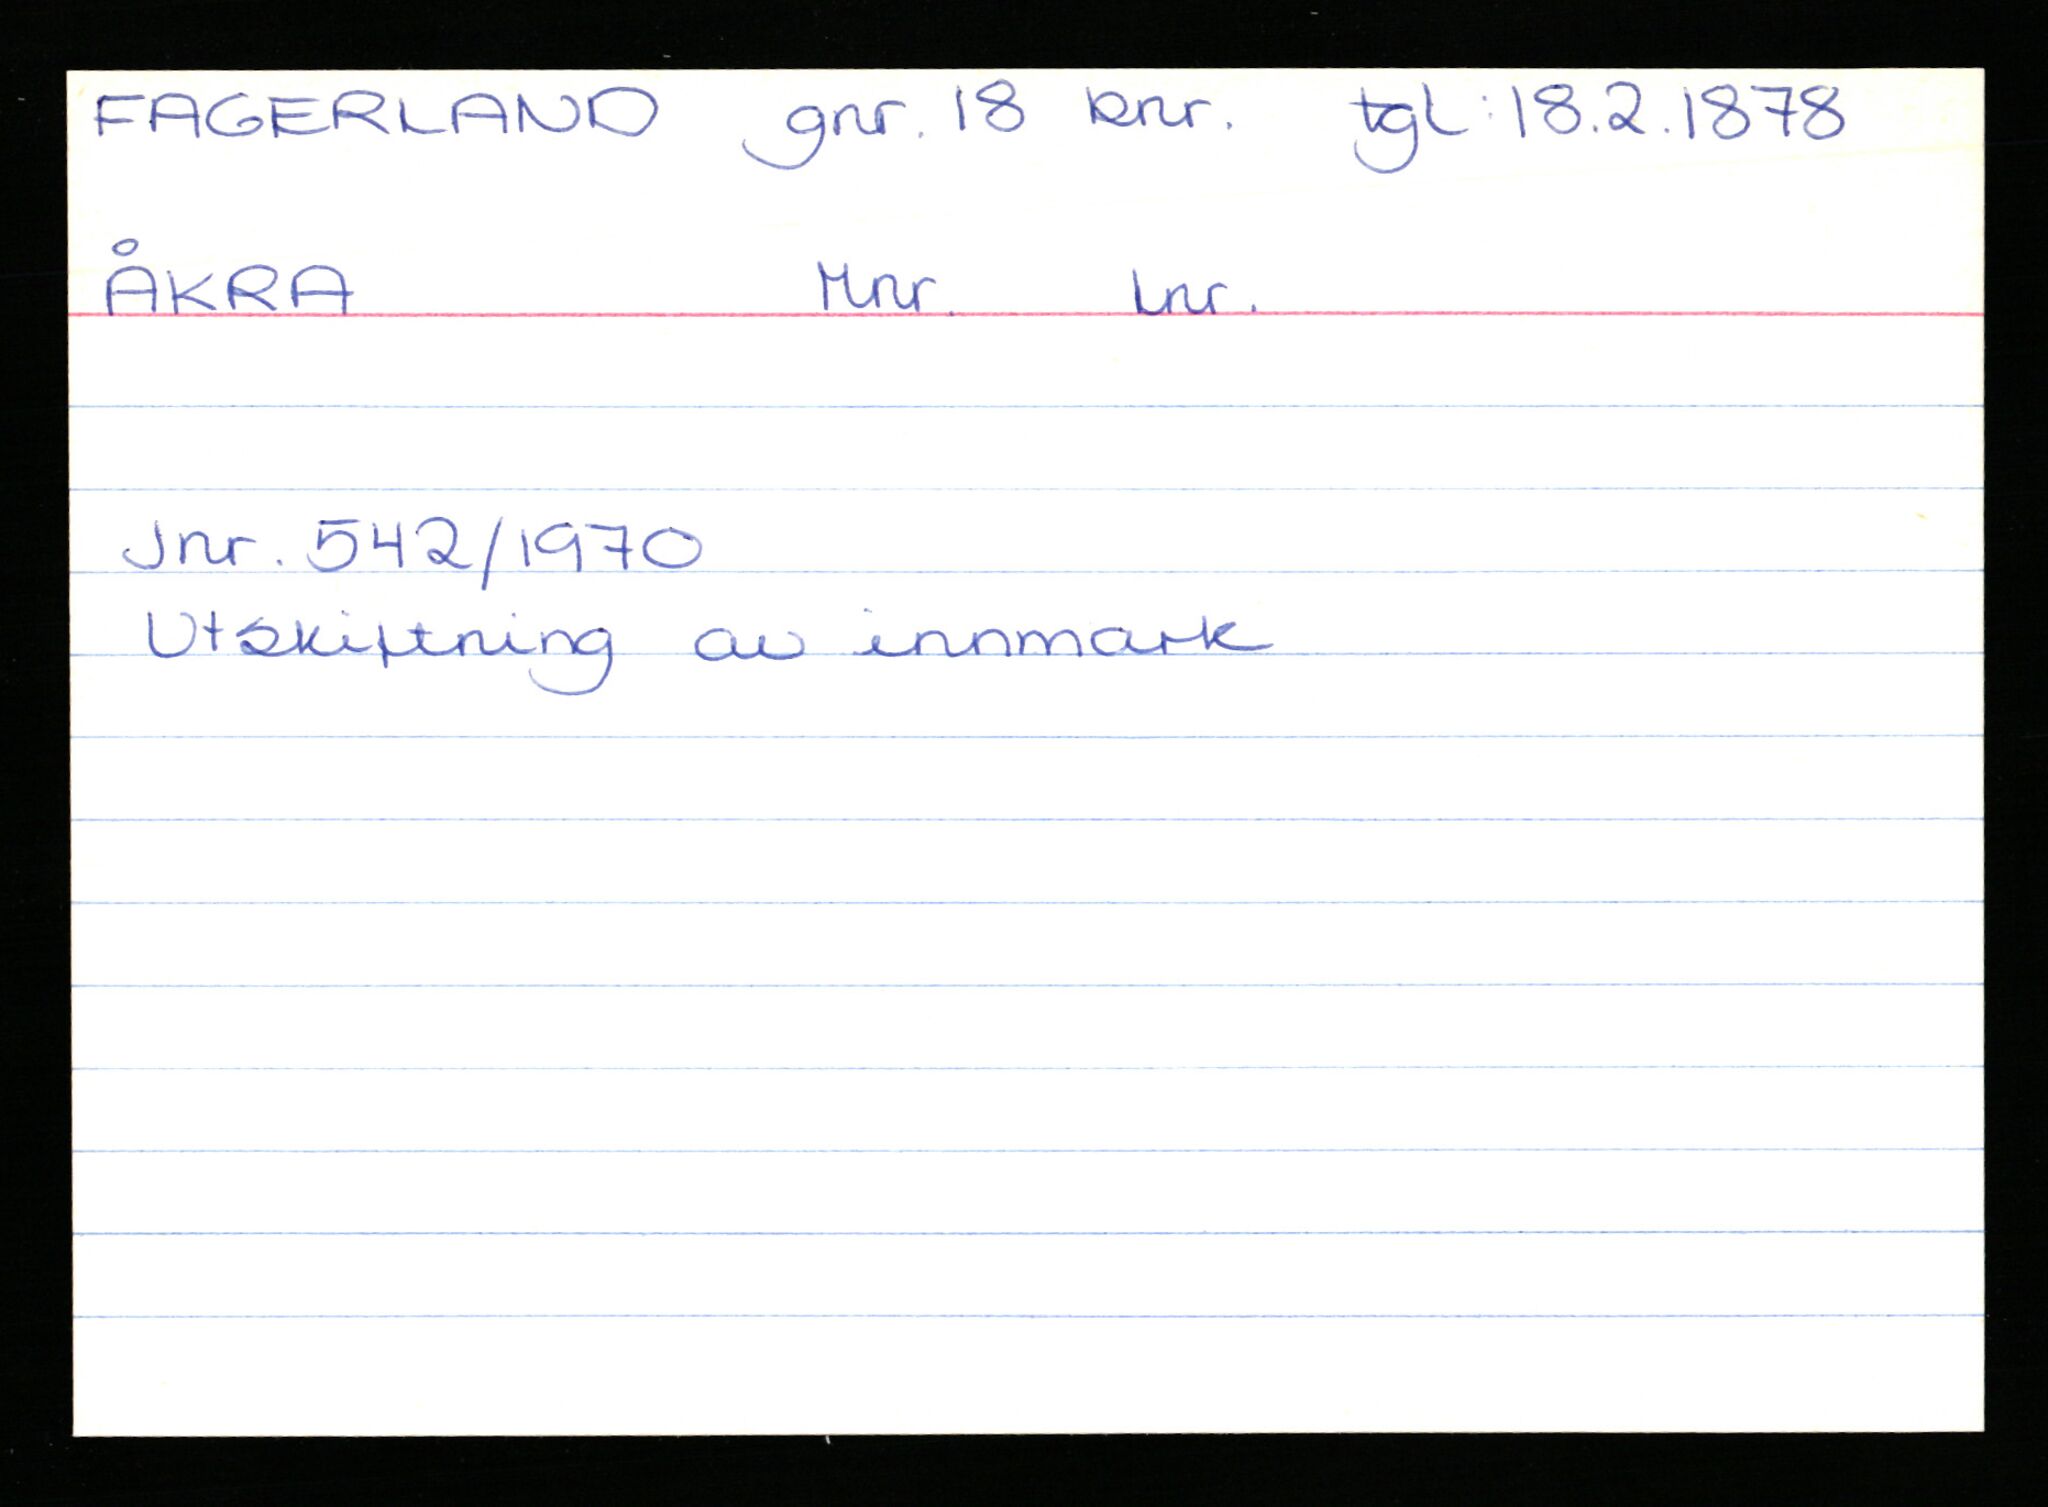 FAGERLAND gnr. 18 bnr. tgl: 18.2.1878
ÅKRA Mnr. Lnr.
Jnr. 542/1970
Utskiftning av innmark